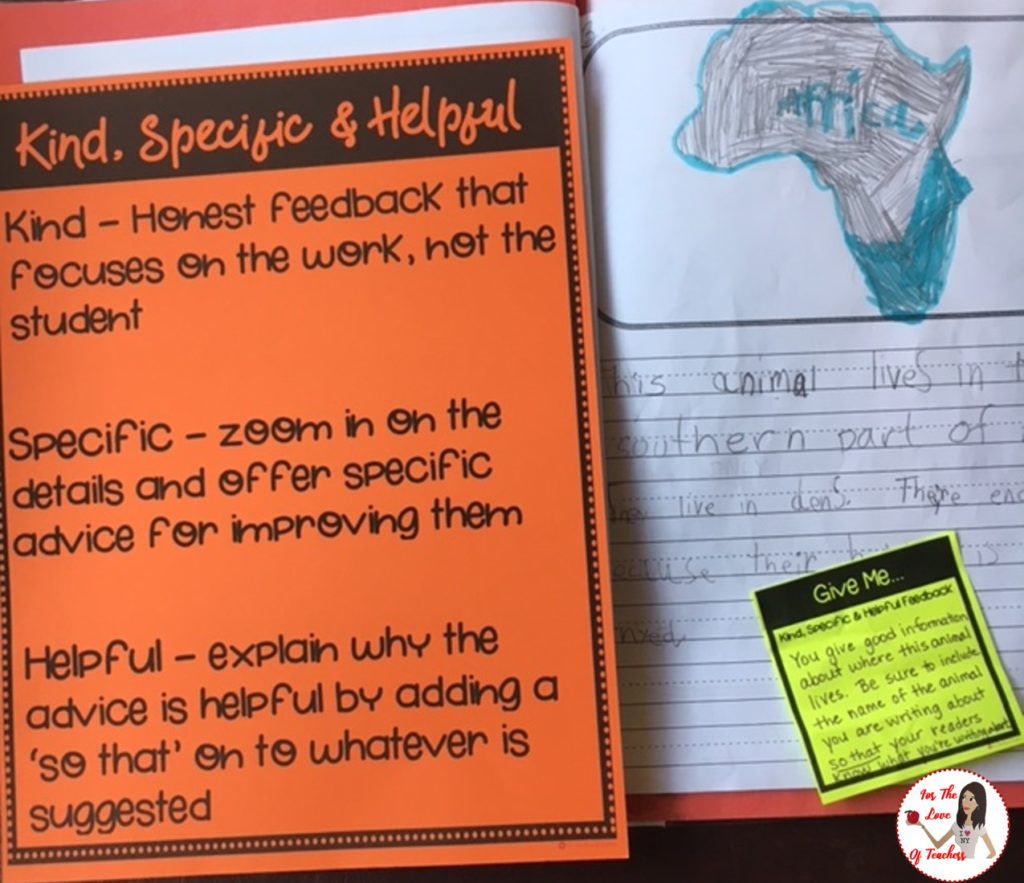 Kind, Specific & Helpful
Kind – Honest feedback that
focuses on the work, not the
student
Specific – zoom in on the
details and offer specific
advice for improving them
Helpful – explain why the
advice is helpful by adding a
'so that' on to whatever is
suggested
Africa
his animal lives in t
southern part of
live in dens. There en
ecause their is
Give Me...
Kind, Specific & Helpful Feedback
You give good information
about where this animal
lives. Be sure to include
the name of the animal
you are writing about
so that your readers
know what you're writing about
For The
Love
Of Teachers
I ♥
NY